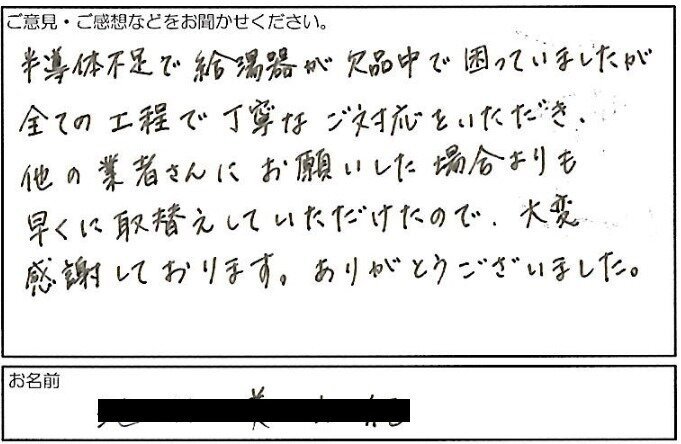 ご意見・ご感想などをお聞かせください。
半導体不足で給湯器が欠品中で困っていましたが
全ての工程で丁寧なご対応をいただき、
他の業者さんにお願いした場合よりも
早くに取替えしていただけたので、大変
感謝しております。ありがとうございました。
お名前